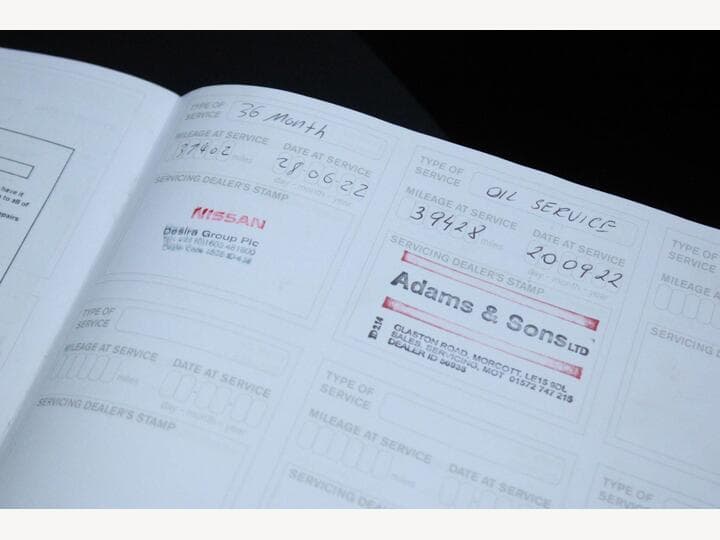 have it
repairs
TYPE OF
SERVICE
36 Month
MILEAGE AT SERVICE
37402 miles
DATE AT SERVICE
28 06 22
day - month - year
SERVICING DEALER'S STAMP
NISSAN
Desira Group Plc
TYPE OF
SERVICE
OIL SERVICE
MILEAGE AT SERVICE
39428 miles
DATE AT SERVICE
20 09 22
day - month - year
SERVICING DEALER'S STAMP
Adams & Sons LTD
GLASTON ROAD, MORCOTT, LE15 9DL
SALES, SERVICING, MOT 01572 747 215
DEALER ID 56935
TYPE OF
SERVICE
MILEAGE A
SERVICING D
TYPE OF
SERVICE
MILEAGE AT SERVICE
miles
DATE AT SERVICE
day - month - year
SERVICING DEALER'S STAMP
TYPE OF
SERVICE
MILEAGE AT SERVICE
miles
DATE AT SERVICE
SERVICING DEALER'S STAMP
TYPE OF
SERVICE